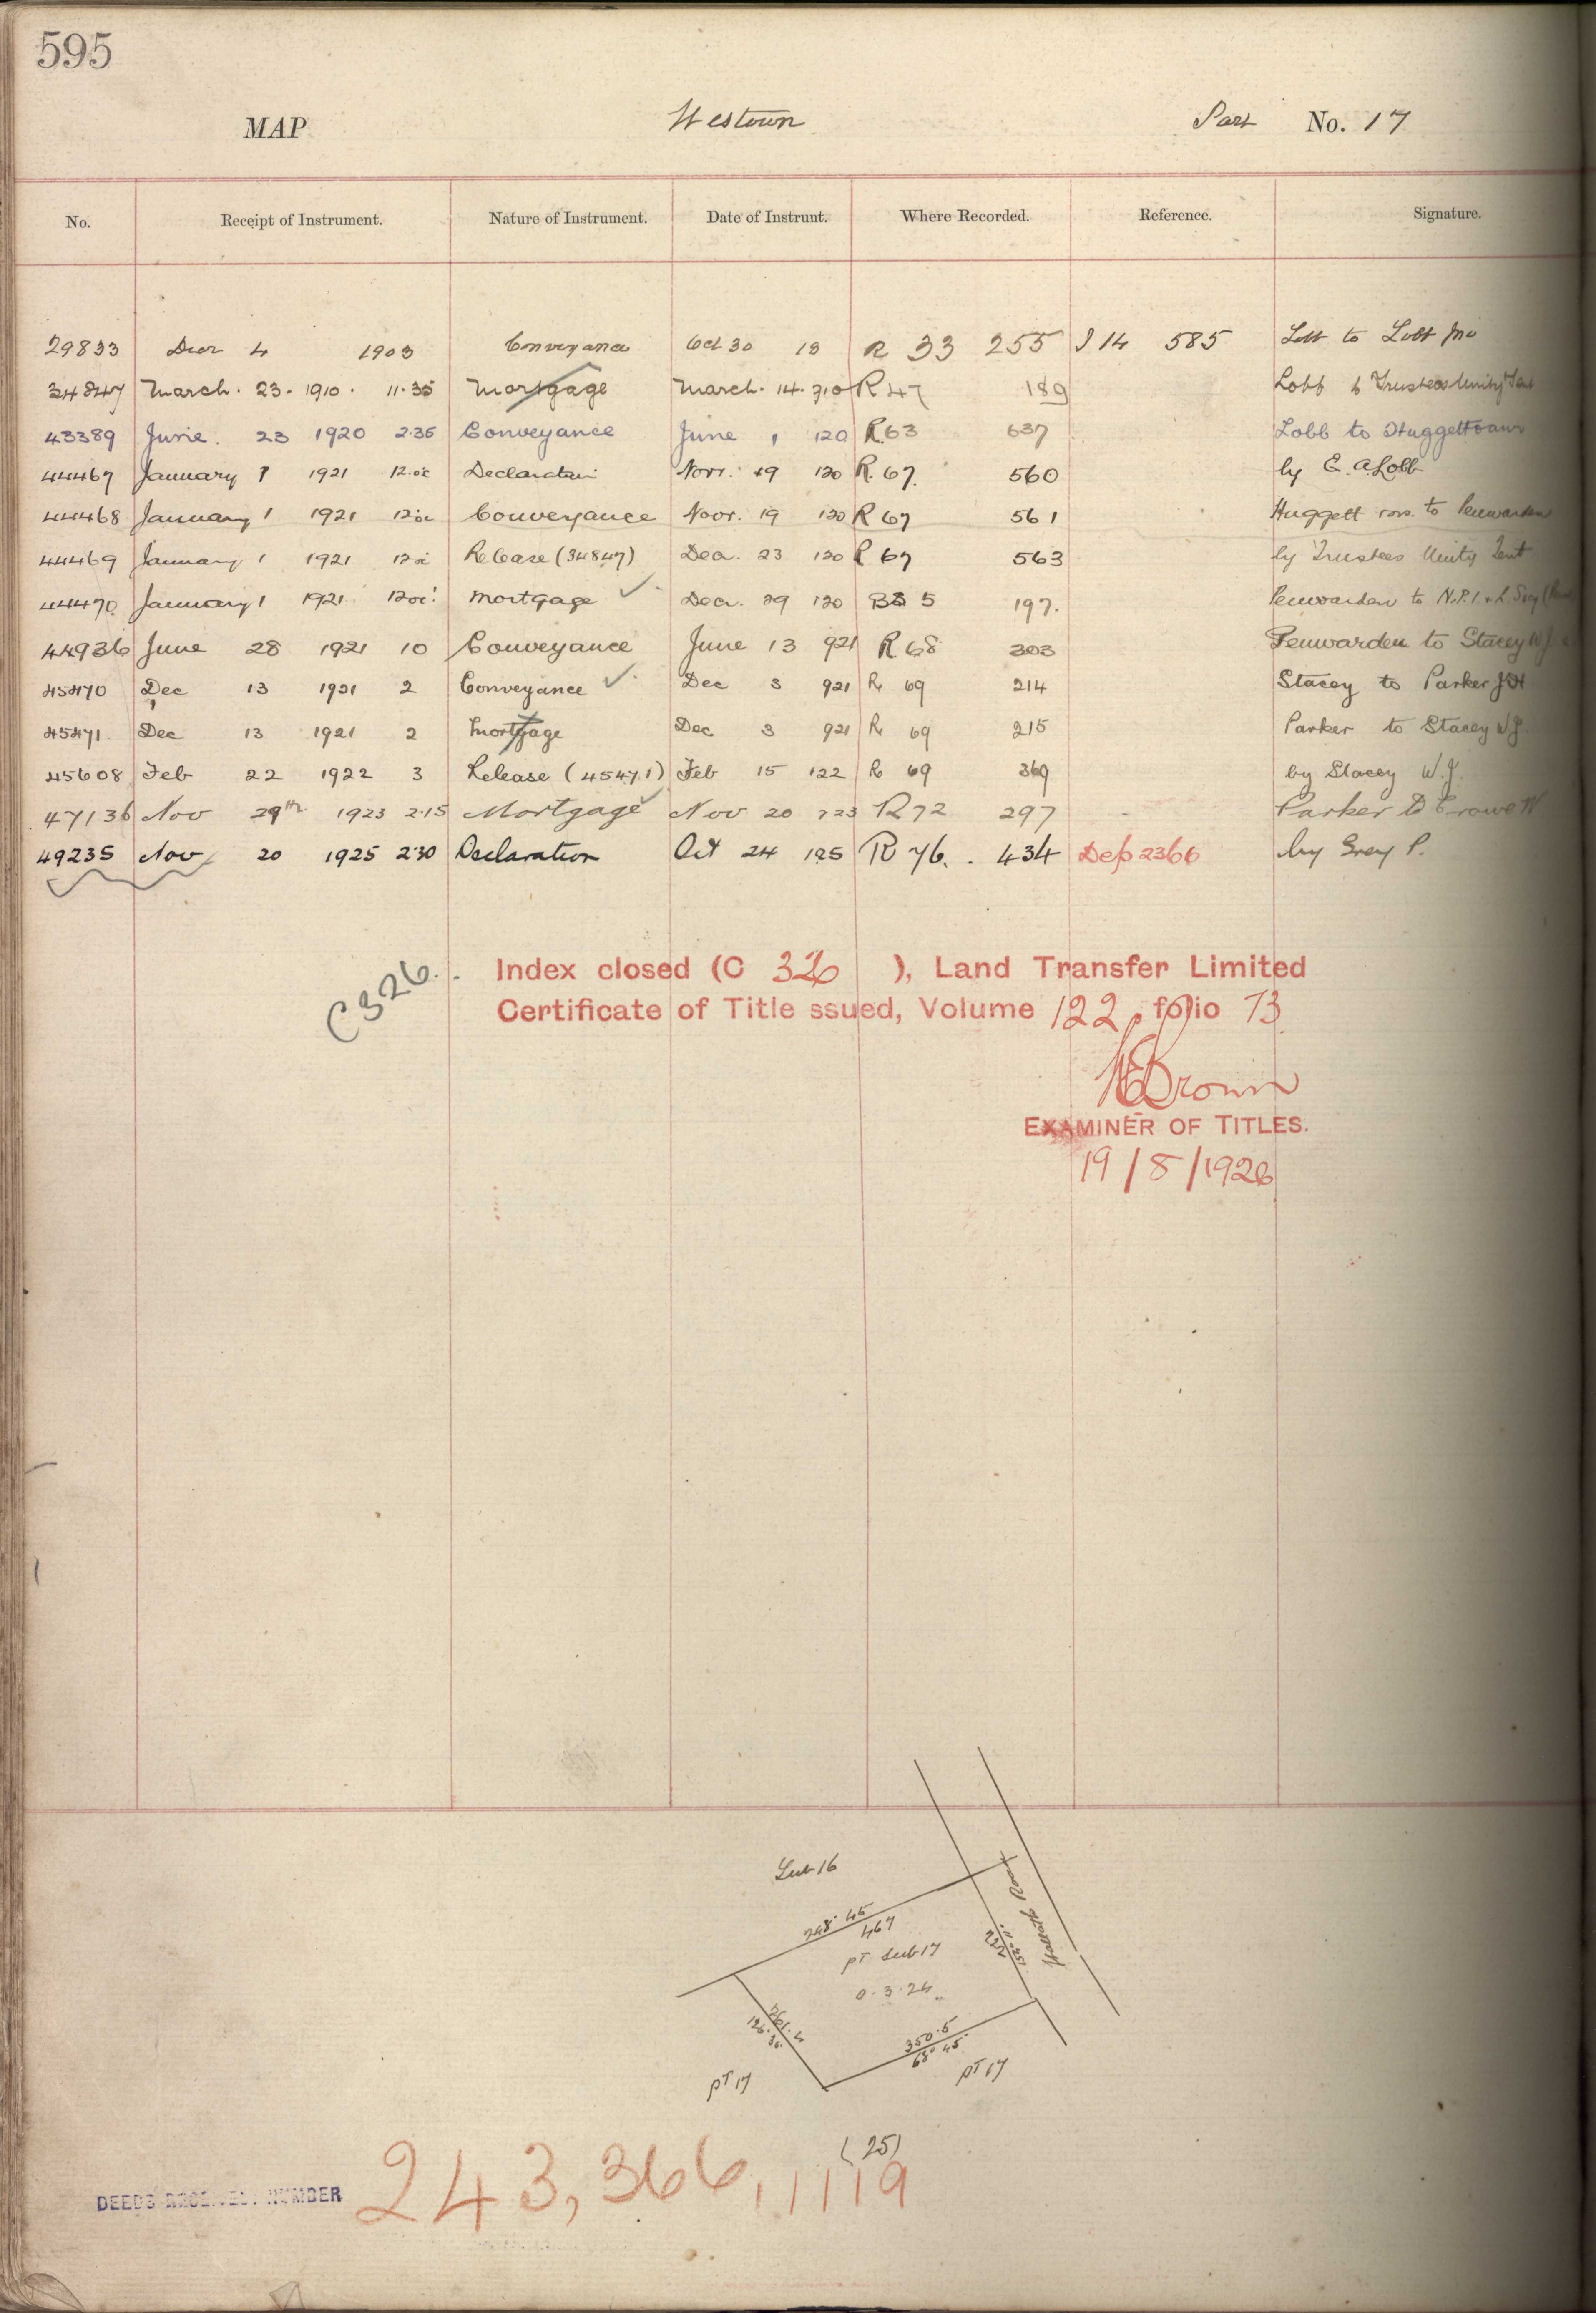 595
MAP Westown Part No. 17
No. Receipt of Instrument. Nature of Instrument. Date of Instrunt. Where Recorded. Reference. Signature.
29833 Decr 4 1903 Conveyance Oct 30 18 R 33 255 I 14 585 to Lobb
34847 March. 23. 1910. 11.35 Mortgage March. 14. 910 R 47 189 Lobb to Trustees Unity Tent
43389 June. 23 1920 2.35 Conveyance June 1 120 R 63 637 Lobb to Huggett
44467 January 1 1921 12.oc Declaration Novr. 19 120 R. 67. 560 by E. A. Lobb
44468 January 1 1921 12 oc Conveyance Novr. 19 120 R 67 561 Huggett to Penwarden
44469 January 1 1921 12 oc Release (34847) Decr. 23 120 R 67 563 by Trustees Unity Tent
44470 January 1 1921 12 oc Mortgage Decr. 29 120 5 197. Penwarden to N.P.I. & L. Socy
44936 June 28 1921 10 Conveyance June 13 921 R 68 303 Penwarden to Stacey W J
45470 Dec 13 1921 2 Conveyance Dec 3 921 R 69 214 Stacey to Parker J H
45471 Dec 13 1921 2 Mortgage Dec 3 921 R 69 215 Parker to Stacey W J.
45608 Feb 22 1922 3 Release (45471) Feb 15 122 R 69 369 by Stacey W. J.
47136 Nov 29th 1923 2.15 Mortgage Nov 20 923 R 72 297 Parker to Crowe W
49235 Nov 20 1925 2.30 Declaration Oct 24 125 R 76. 434 Dep 2366 by Grey P.
C 326. Index closed (C 326 ), Land Transfer Limited
Certificate of Title ssued, Volume 122, folio 73
Brown
EXAMINER OF TITLES.
19/8/1926
Sub 16
248° 45
467
pt Sub 17
0. 3. 24
Road
261.4
126° 36
350.5
68° 45
pt 17
pt 17
(25)
DEEDS RECEIVED NUMBER 243, 366, 1119